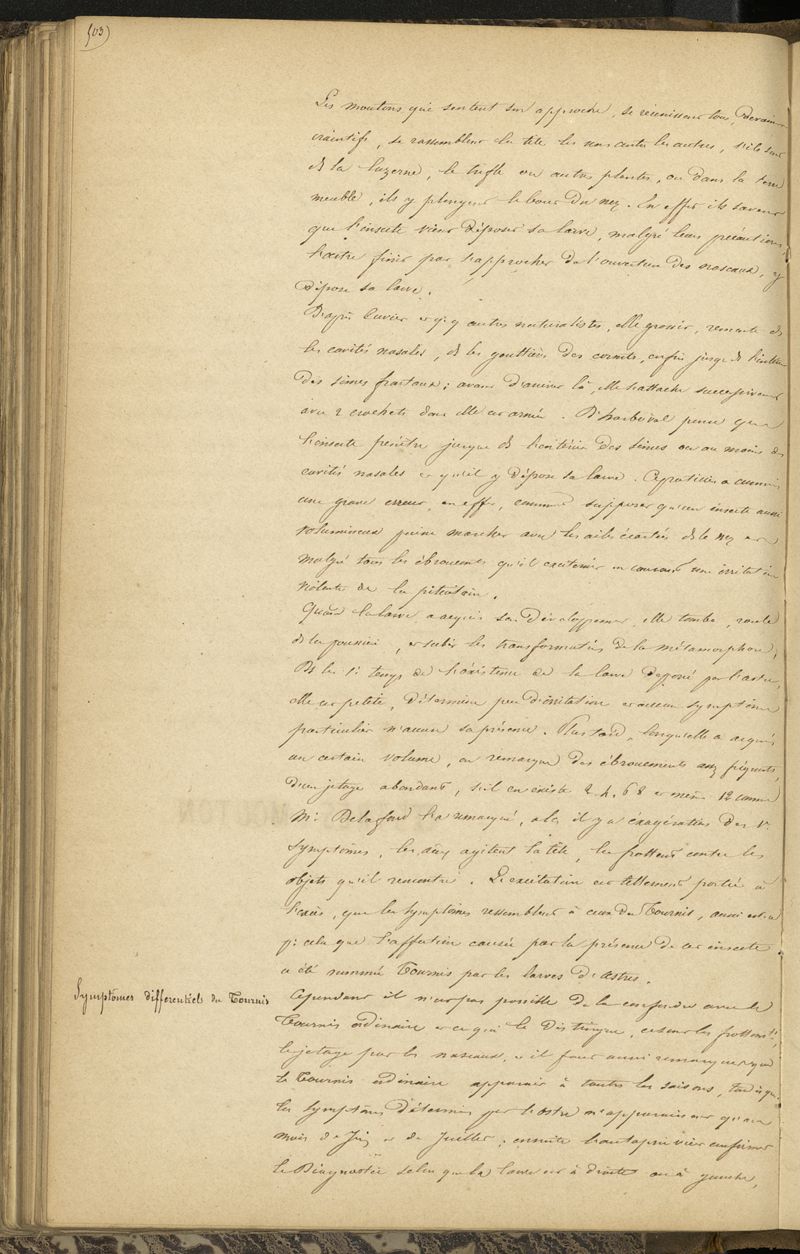 503)
Les moutons qui sentent son approche, se réunissent tous, deviennent
craintifs, se rassemblent la tête les uns contre les autres, s'ils sont
ds la luzerne, le trèfle ou autres plantes, ou dans la terre
meuble, ils y plongent le bout du nez. En effet ils savent
que l'insecte vient déposer sa larve, malgré leurs précautions,
l'œstre finit par s'approcher de l'ouverture des naseaux, y
dépose sa larve.
D'après Cuvier et qq autres naturalistes, elle grossit, remonte ds
les cavités nasales, ds les gouttières des cornets, enfin jusque ds l'intérieur
des sinus frontaux; avant d'arriver là, elle s'attache successivement
avec 2 crochets dont elle est armée. D'Harboval pense que
l'insecte pénètre jusque ds l'intérieur des sinus ou au moins des
cavités nasales et qu'il y dépose sa larve. Ce praticien a commis
une grave erreur, en effet, comment supposer qu'un insecte aussi
volumineux puisse marcher avec les ailes écartées ds le nez et
malgré tous les ébrouements qu'il exciterait en causant une irritation
violente de la pituitaire.
Quand la larve a acquis son développement, elle tombe, roule
ds la poussière, et subit les transformations de la métamorphose.
Ds les 1ers temps de l'existence de la larve déposée par l'œstre,
elle est petite, détermine peu d'irritation et aucun symptôme
particulier n'accuse sa présence. Plus tard, lorsqu'elle a acquis
un certain volume, on remarque des ébrouements assez fréquents,
d'un jetage abondant, s'il en existe 2. 4. 6 8 et même 12 comme
Mr Delafond l'a remarqué, alors il y a exagération des 1ers
symptômes, les agitent la tête, la frottent contre les
objets qu'il rencontre. L'excitation est tellement portée à
l'excès, que les symptômes ressemblent à ceux du Tournis, aussi est-ce
pr cela que l'affection causée par la présence de cet insecte
a été nommée Tournis par les larves d'œstres.
Symptômes différentiel du Tournis
Cependant il n'est pas possible de le confondre avec le
Tournis ordinaire et ce qui le distingue, ce sont les frottements,
le jetage par les naseaux, et il faut aussi remarquer que
le Tournis ordinaire apparaît à toutes les saisons, tandis que
les symptômes déterminés par l'œstre n'apparaissent qu'au
mois de Juin et de Juillet; ensuite l'autopsie vient confirmer
le Diagnostic selon que la larve est à droite ou à gauche,